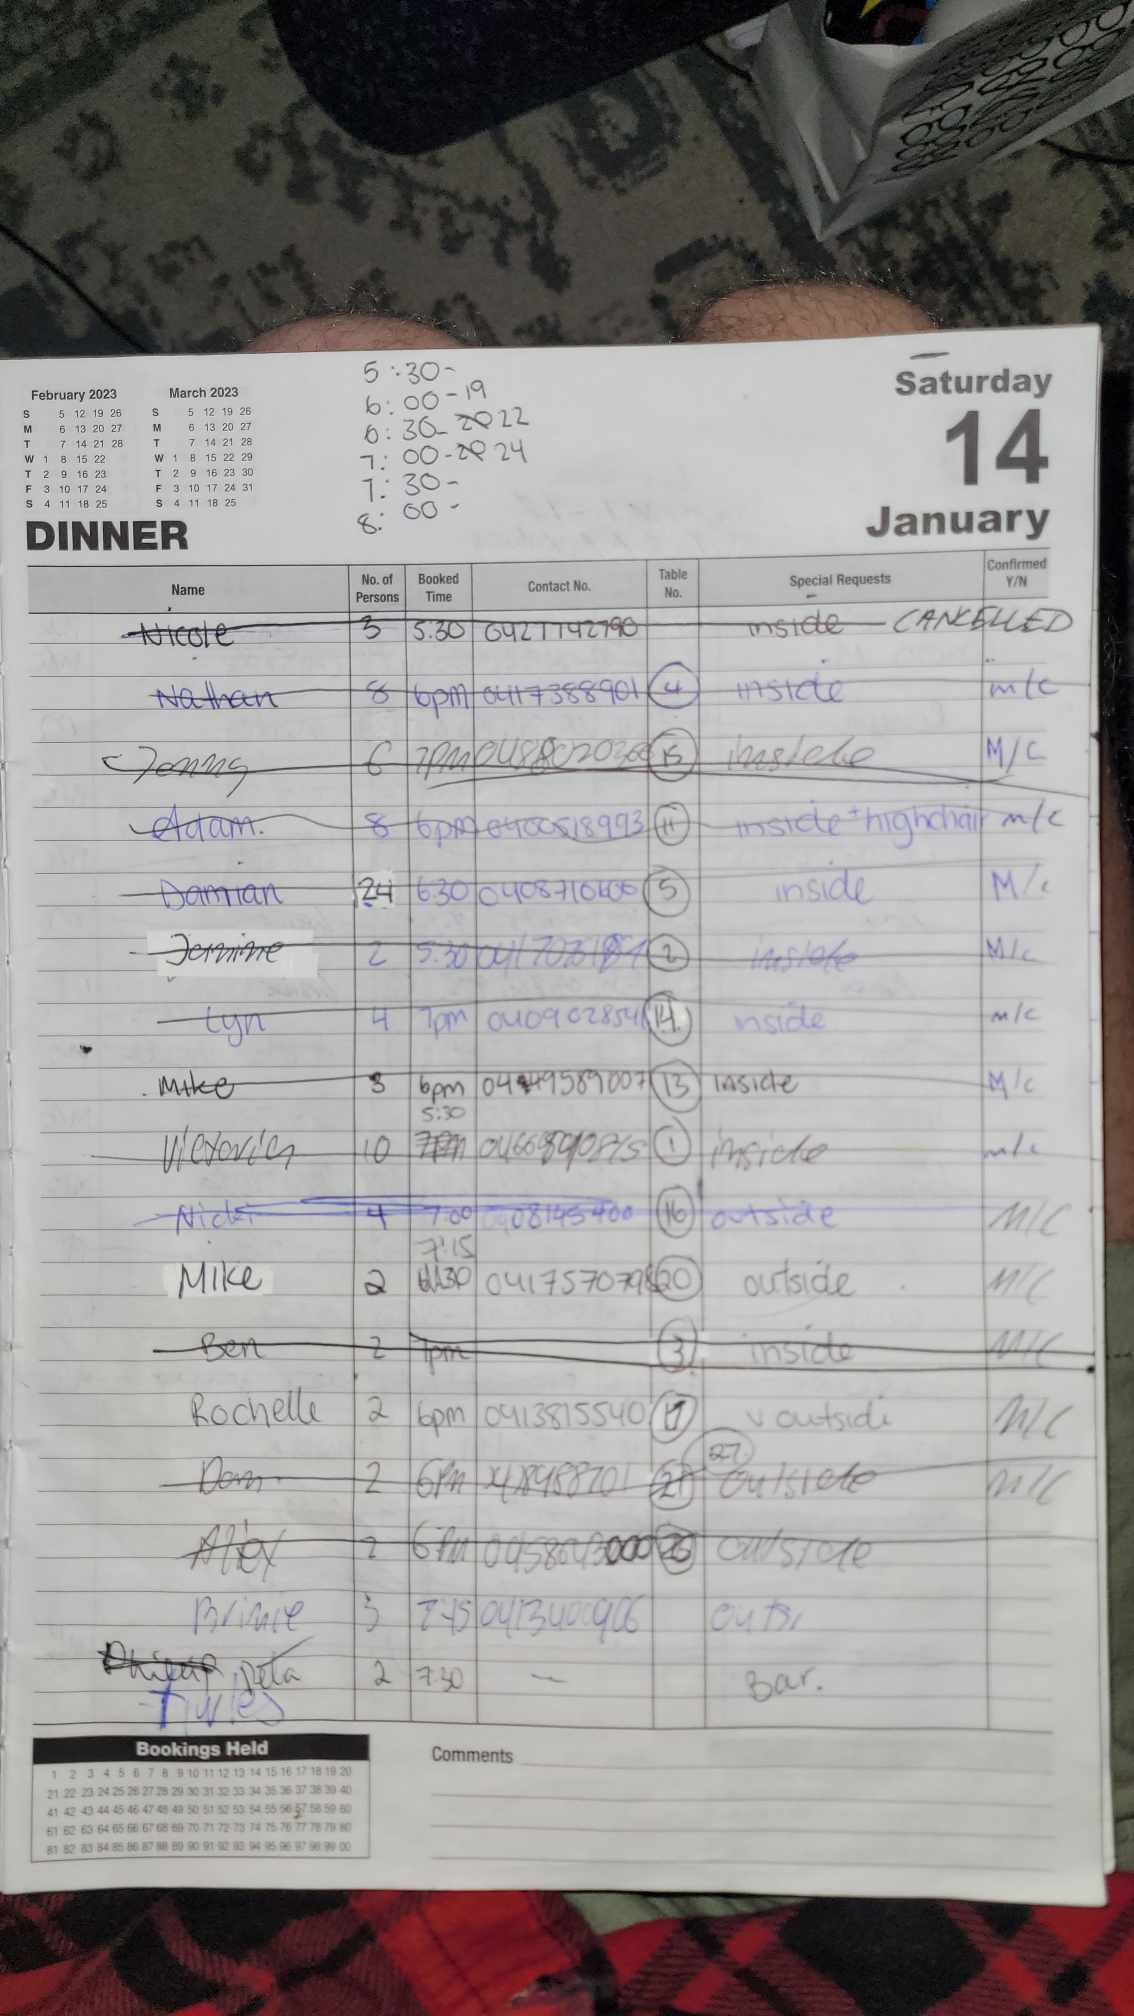 February 2023
S 5 12 19 26
M 6 13 20 27
T 7 14 21 28
W 1 8 15 22
T 2 9 16 23
F 3 10 17 24
S 4 11 18 25
March 2023
S 5 12 19 26
M 6 13 20 27
T 7 14 21 28
W 1 8 15 22 29
T 2 9 16 23 30
F 3 10 17 24 31
S 4 11 18 25
5:30-
6:00-19
6:30- 22
7:00- 24
7:30-
8:00-
Saturday
14
January
DINNER
Name No. of Persons Booked Time Contact No. Table No. Special Requests Confirmed Y/N
Nicole 3 5.30 0427742790 inside CANCELLED
Nathan 8 6pm 0417388901 4 inside m/c
Jenny 6 7PM 15 inside M/C
Adam. 8 6pm 0400518993 11 inside + highchair m/c
Damian 24 6.30 5 inside M/c
2 5.30 2 inside M/c
Lyn 4 7pm 14 inside m/c
Mike 3 6pm 13 inside M/c
5:30
10 7pm 1 inside m/c
Nicki 4 7.00 0408145400 16 outside M/C
7:15
Mike 2 20 outside M/C
Ben 2 7pm 3 inside M/C
Rochelle 2 6pm 0413815540 17 outside M/C
27
2 6PM 21 outside M/C
Alex 2 6PM outside
3 7.45
2 7.30 — Bar.
Bookings Held
1 2 3 4 5 6 7 8 9 10 11 12 13 14 15 16 17 18 19 20
21 22 23 24 25 26 27 28 29 30 31 32 33 34 35 36 37 38 39 40
41 42 43 44 45 46 47 48 49 50 51 52 53 54 55 56 57 58 59 60
61 62 63 64 65 66 67 68 69 70 71 72 73 74 75 76 77 78 79 80
81 82 83 84 85 86 87 88 89 90 91 92 93 94 95 96 97 98 99 00
Comments